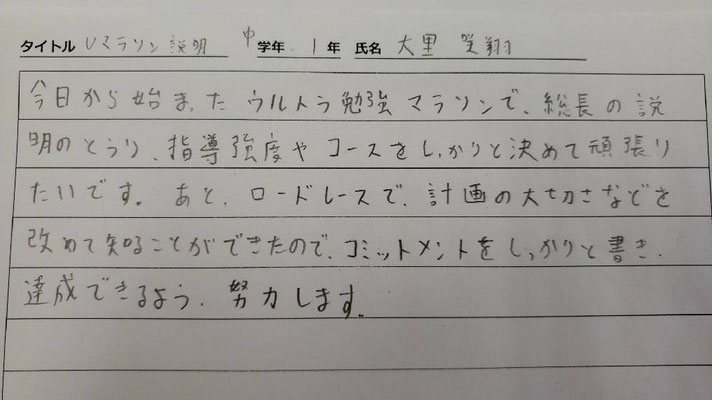 タイトル Uマラソン説明 中 学年 1 年 氏名 大里 笑翔
今日から始まった ウルトラ勉強マラソンで、総長の説
明のとうり、指導強度や コースをしっかりと決めて頑張り
たいです。 あと、ロードレースで、計画の大切さなどを
改めて知ることができたので、コミットメントをしっかりと書き、
達成できるよう、努力します。